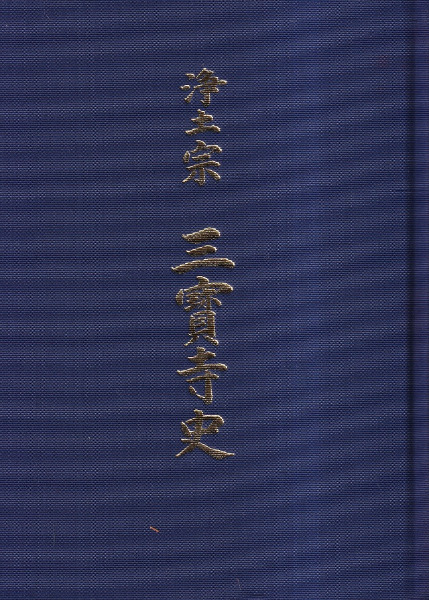 浄土宗 三寳寺史